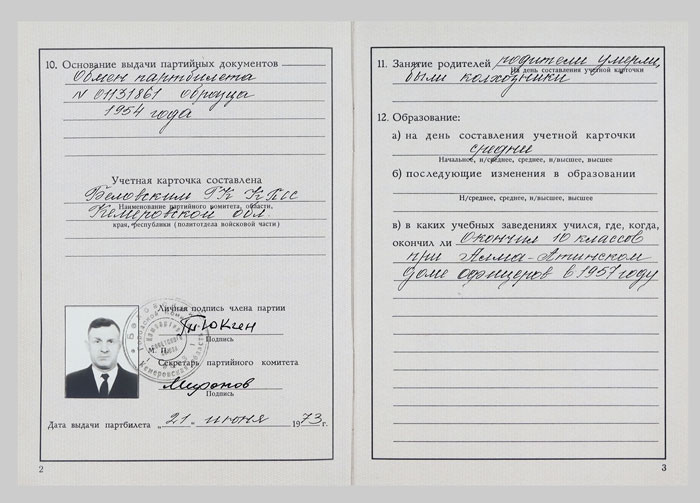 10. Основание выдачи партийных документов
Обмен партбилета
N 01131861 образца
1954 года
Учетная карточка составлена
Беловским ГК КПСС
Наименование партийного комитета, области,
Кемеровской обл.
края, республики (политотдела войсковой части)
Личная подпись члена партии
Подпись
М. П.
Секретарь партийного комитета
Миронов
Подпись
Кемеровская область
Дата выдачи партбилета „21„ июня 1973г.
2
11. Занятие родителей родители умерли,
На день составления учетной карточки
были колхозники
12. Образование:
а) на день составления учетной карточки
средни
Начальное, н/среднее, среднее, н/высшее, высшее
б) последующие изменения в образовании
Н/среднее, среднее, н/высшее, высшее
в) в каких учебных заведениях учился, где, когда,
окончил ли Окончил 10 классов
при Алма-Атинском
доме офицеров в 1957 году
3